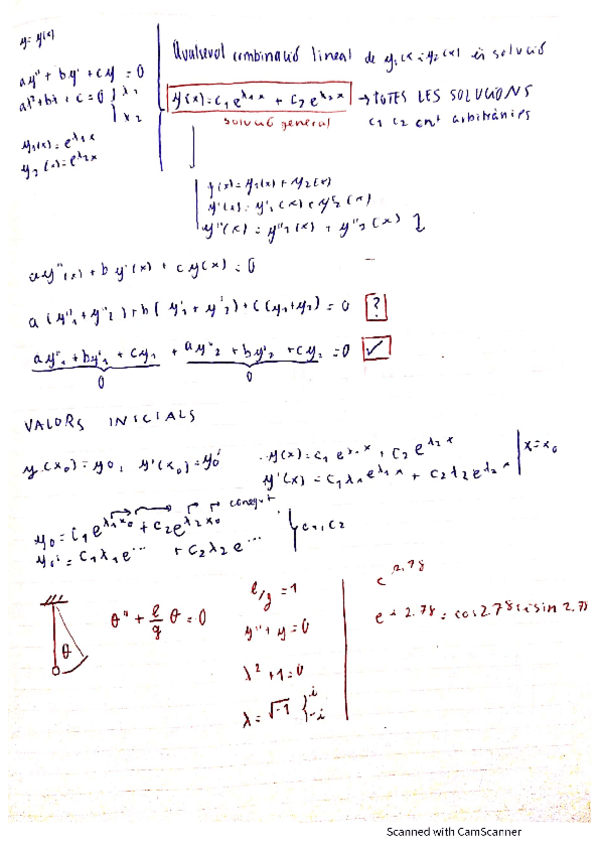 y = y(x)
ay'' + by' + cy = 0
aλ² + bλ + c = 0 { λ1
λ2
y1(x) = e^λ1x
y2(x) = e^λ2x
Qualsevol combinació lineal de y1(x) i y2(x) és solució
y(x) = c1 e^λ1x + c2 e^λ2x → TOTES LES SOLUCIONS
solució general
c1 c2 arbitràries
y(x) = y1(x) + y2(x)
y'(x) = y'1(x) + y'2(x)
y''(x) = y''1(x) + y''2(x)
ay''(x) + by'(x) + cy(x) = 0
a(y''1 + y''2) + b(y'1 + y'2) + c(y1 + y2) = 0 ?
ay''1 + by'1 + cy1 + ay''2 + by'2 + cy2 = 0 ✓
0 0
VALORS INICIALS
y(x0) = y0, y'(x0) = y0'
y(x) = c1 e^λ1x + c2 e^λ2x
y'(x) = c1λ1e^λ1x + c2λ2e^λ2x | x = x0
conegut
y0 = c1e^λ1x0 + c2e^λ2x0
y0' = c1λ1e^... + c2λ2e^... } c1, c2
θ'' + l/g θ = 0
θ
l/g = 1
y'' + y = 0
λ² + 1 = 0
λ = √-1 { i
-i
e^2.78
e^i 2.78 = cos 2.78 + i sin 2.78
Scanned with CamScanner